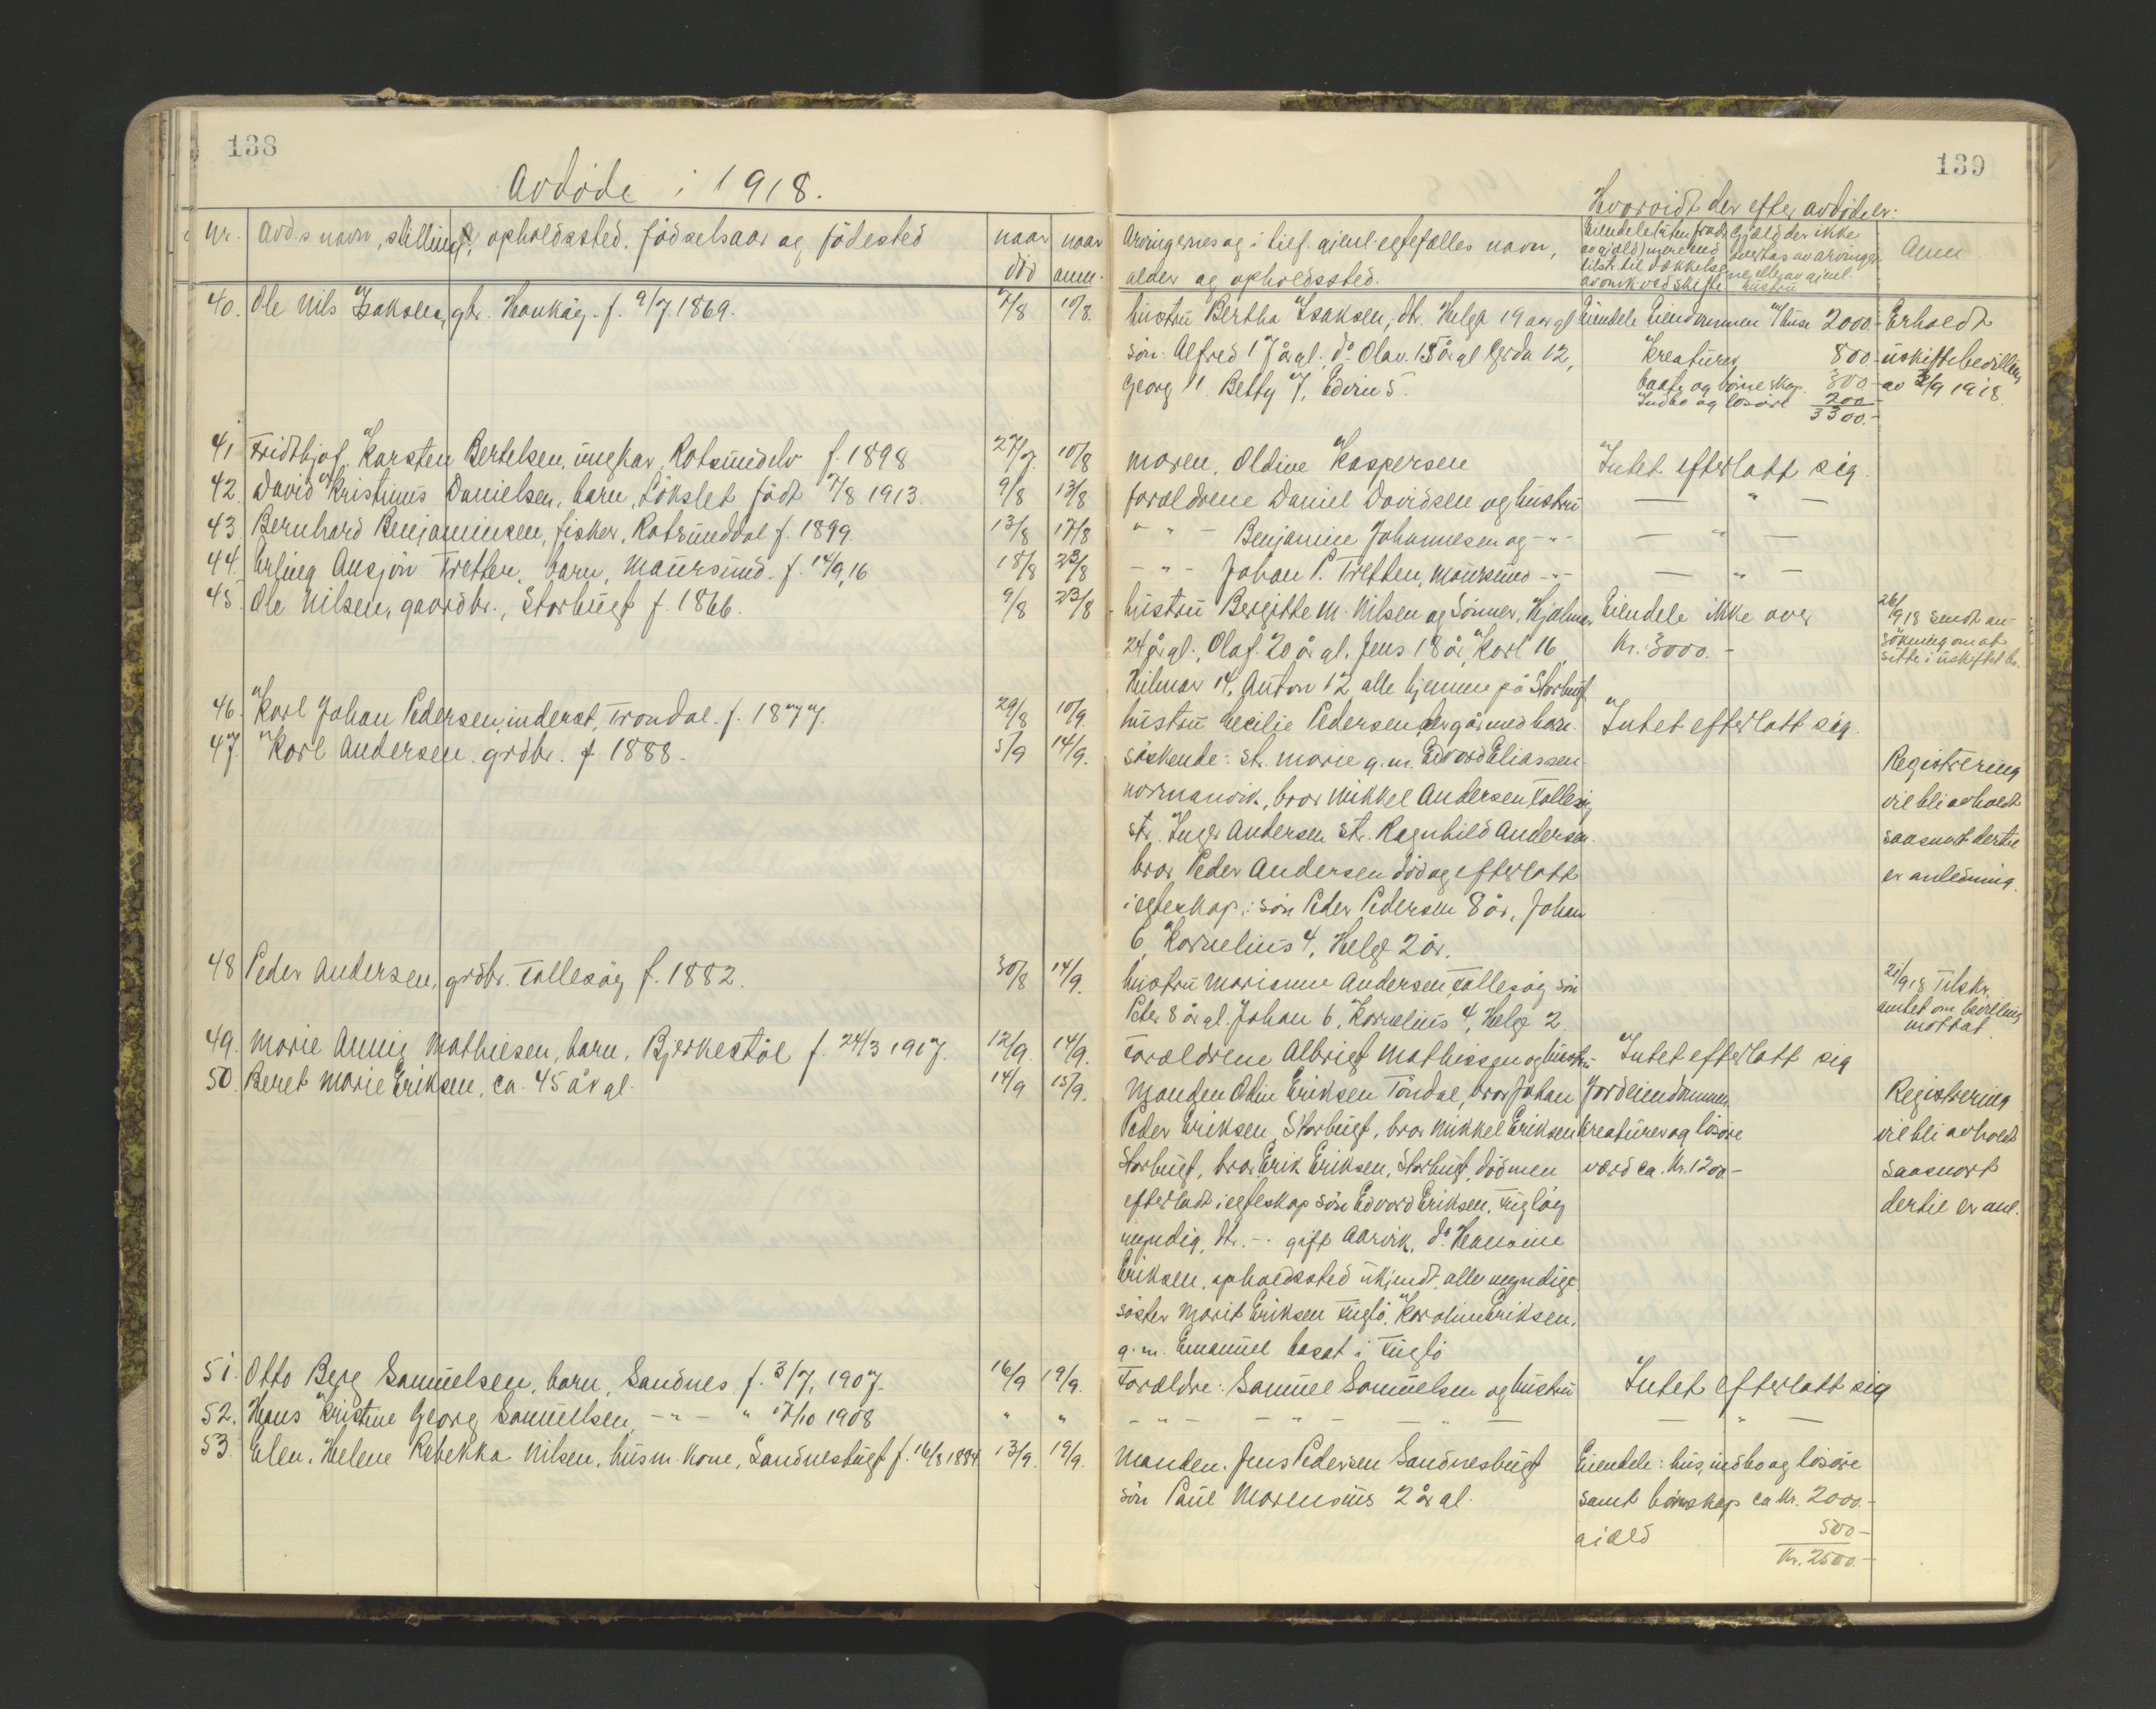 138
Avdøde i 1918.
nr. Avd.s navn, stilling, opholdssted, fødselsaar og fødested naar død naar anm.
40. Ole Nils Isaksen, gbr. Haukøy. f. 9/7 1869. 7/8 10/8.
41 Fridthjof Karsten Bertelsen, ungkar, Rotsundelv f. 1898 27/7. 10/8
42. David Kristinus Danielsen, barn, Lökslet födt 7/8 1913. 9/8 13/8
43. Bernhard Benjaminsen, fisker, Rotsunddal f. 1899. 13/8 17/8
44. Erling Ansjön Tretten, barn, Maursund. f. 14/9, 16 18/8 23/8
45. Ole Nilsen, gaardbr., Storbugt f. 1866. 9/8 23/8
46. Karl Johan Pedersen, inderst, Trondal. f. 1877. 29/8 10/9.
47. Karl Andersen. grdbr. f 1888. 5/9 14/9.
48 Peder Andersen, grdbr. Tallesøy f. 1882. 30/8 14/9.
49. Marie Annie Mathiesen, barn, Bjerkestöl f. 24/3 1907. 12/9. 14/9.
50. Beret Marie Eriksen, ca. 45 år gl. 14/9 15/9.
51. Otto Berg Samuelsen, barn, Sandnes f. 3/7, 1907. 16/9 19/9.
52. Hans Kristine Georg Samuelsen, - " - " 17/10 1908 " "
53. Elen. Helene Rebekka Nilsen, husm. kone, Sandnesbugt f. 16/8 1884 13/9. 19/9.
139
Hvorvidt der efter avdöde er:
Arvingernes og i tilf. gjenl. egtefælles navn, alder og opholdssted.
Eiendele (uten fradr. av gjæld) mere end tilstr. til dækkelse av omk. ved skifte
Gjæld der ikke overtas av arvingerne eller av gjenl. hustru
Anm
hustru Bertha Isaksen, dtr. Helga 19 aar gl Eiendele Eiendommen m/ huse 2000.- Erholdt
sön. Alfred 17 år gl. do Olav. 15 år gl Gerda 12, Kreaturer 800 uskiftebevilling
Georg 11 Betty 7, Edvin 5. baate og börneskap. 300 - av 2/9 1918.
Indbo og lösöre 200
3300.-
moren, Oldine Kaspersen Intet efterlatt sig.
forældrene Daniel Davidsen og hustru - " -
- " - Benjamin Johannesen og - " - - " -
- " - Johan P. Tretten, Maursund - " - - " -
hustru Bergitte M. Nilsen og Sönner. Hjalmar Eiendele ikke over 26/9 18 sendt an-
24 år gl., Olaf 20 år gl. Jens 18 år, Karl 16, Kr. 3000.- sökning om at
Hilmar 14, Anton 12 alle hjemme på Storbugt sitte i uskiftet bo.
hustru Cecilie Pedersen, der går med barn. Intet efterlatt sig.
söskende: st. Marie g. m. Edvard Eliassen Registrering
Normanvik, bror Mikkel Andersen Tallesøy vil bli avholdt
str. Inger Andersen str. Ragnhild Andersen. saasnart dertil
bror Peder Andersen död og efterlatt er anledning.
i egteskap: sön Peder Pedersen 8 år, Johan
6, Kornelius 4, Helg 2 år.
hustru Marianne Andersen, Tallesøy sön 21/9 18 Tilskr.
Peter 8 år gl. Johan 6, Kornelius 4, Helg 2. amtet om bevilling mottat.
Forældrene Albrigt Mathissen og hustru Intet efterlatt sig
Manden Odin Eriksen Töndal, bror Johan Jordeiendommen. Registrering
Peder Eriksen Storbugt, bror Mikkel Eriksen kreaturer og lösöre vil bli avholdt
Storbugt, bror Erik Eriksen, Storbugt, död men værd ca. Kr. 1200.- saasnart
efterladt i egteskap sön Edvard Eriksen, Fugløy dertil er anl.
myndig, dtr. - gift Aarvik, do Hansine
Eriksen, opholdssted ukjendt, alle myndige.
söster Marit Eriksen Fuglö, Karoline Eriksen.
g. m. Emanuel bosat i Fuglö
Forældre: Samuel Samuelsen og hustru Intet efterlatt sig
- " - - " - - " - - " -
Manden. Jens Pedersen Sandnesbugt Eiendele: hus, indbo og lösöre
sön Paul Marensius 2 år gl. samt börnskap ca Kr. 2000.-
gjæld 500.-
Kr. 2500.-